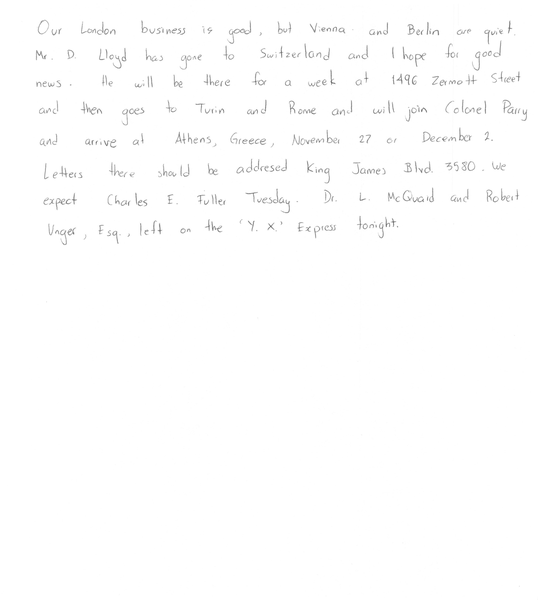 Our London business is good, but Vienna and Berlin are quiet.
Mr. D. Lloyd has gone to Switzerland and I hope for good
news. He will be there for a week at 1496 Zermott Street
and then goes to Turin and Rome and will join Colonel Parry
and arrive at Athens, Greece, November 27 or December 2.
Letters there should be addresed King James Blvd. 3580. We
expect Charles E. Fuller Tuesday. Dr. L. McQuaid and Robert
Unger, Esq., left on the 'Y. X.' Express tonight.